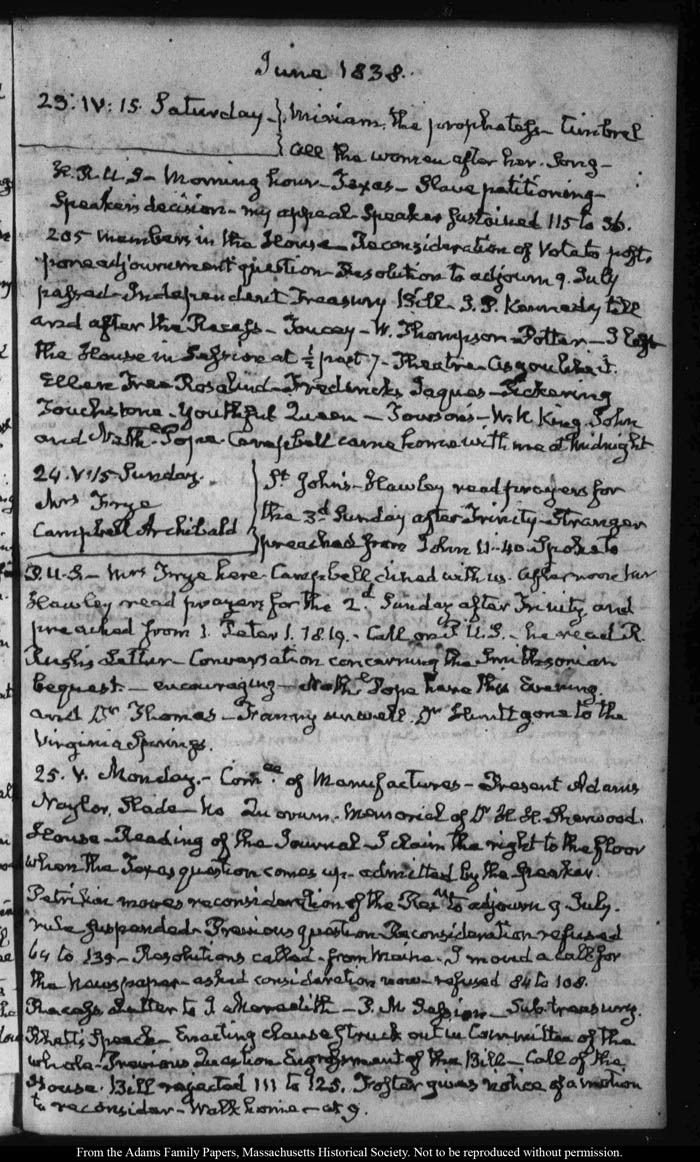 June 1838.
23. IV: 15. Saturday. } Miriam, the prophetess — timbrel
} all the women after her. Song —
H. R. U. S — Morning hour — Texas — Slave petitioning —
Speaker's decision — my appeal. Speaker sustained 115 to 36.
205 members in the House — Reconsideration of Vote to post-
pone adjournment question — Resolution to adjourn 9. July
passed — Independent Treasury Bill — J. P. Kennedy till
and after the Recess — Toucey — W. Thompson — Potter — I left
the House in Session at ½ past 7 — Theatre — As you like it.
Ellen Tree Rosalind — Fredericks Jaques — Pickering
Touchstone — Youthful Queen — Towson's — W. R. King. John
and Nathl. Pope Campbell came home with me at Midnight
24. V: 15 Sunday. } St. John's — Hawley read prayers for
Mrs Frye } the 3d Sunday after Trinity — Stranger
Campbell Archibald } preached from John 11. 40. Spoke to
P. U. S — Mrs Frye here. Campbell dined with us. Afternoon Mr
Hawley read prayers for the 2d Sunday after Trinity and
preached from 1. Peter 1. 18.19. — Call on P. U.S. — he read R.
Rush's Letter — Conversation concerning the Smithsonian
bequest — encouraging — Nathl Pope here this Evening.
and Dr Thomas — Fanny unwell. Dr Hunt gone to the
Virginia Springs.
25. V. Monday. — Comee of Manufactures — Present Adams
Naylor, Slade — No Quorum. Memorial of Dr H. H. Sherwood.
House — Reading of the Journal — I claim the right to the floor
when the Texas question comes up — admitted by the Speaker.
Petrikin moves reconsideration of the Resn to adjourn 9 July.
rule suspended — Previous question — Reconsideration refused
64 to 139 — Resolutions called — from Maine. I moved a call for
the Newspaper — asked consideration now — refused 84 to 108.
Recess Letter to J Meredith — P. M Session — Sub treasury.
Rhett's Speech — Enacting clause struck out in Committee of the
whole — Previous Question Engrossment of the Bill — Call of the
House. Bill rejected 111 to 125. Foster gives notice of a motion
to reconsider — Walk home — at 9.
From the Adams Family Papers, Massachusetts Historical Society. Not to be reproduced without permission.